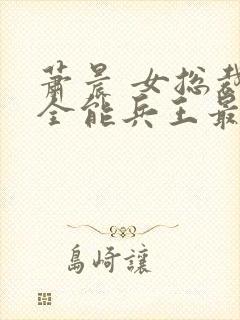 萧晨 女总裁
全能兵王最
島崎讓